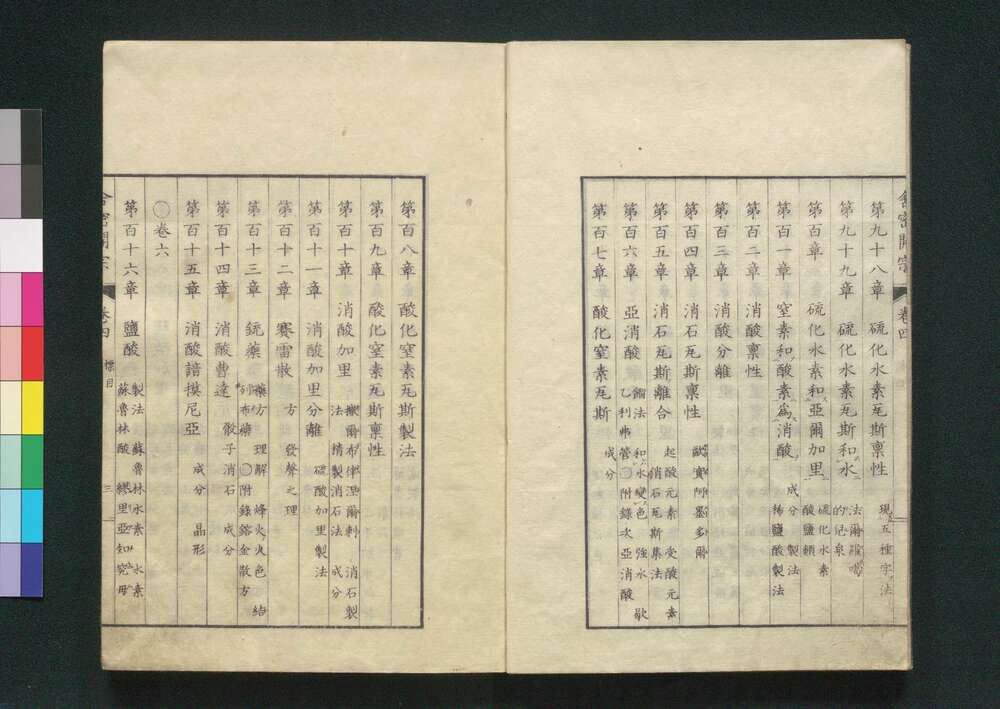 第九十八章 硫化水素瓦斯稟性 現五種字法
第九十九章 硫化水素瓦斯和水 法爾設噶的尼泉
第百章 硫化水素和亞爾加里 硫化水素酸鹽類
第百一章 窒素和酸素爲消酸 成分 製法 稀鹽酸製法
第百二章 消酸稟性
第百三章 消酸分離
第百四章 消石瓦斯稟性
第百五章 消石瓦斯離合 起酸元素 受酸元素 消石瓦斯集法
第百六章 亞消酸 和水變色 強水 乙利弗管 ○附錄次亞消酸
第百七章 酸化窒素瓦斯 成分
舍密開宗 卷四
第百八章 酸化窒素瓦斯製法
第百九章 酸化窒素瓦斯稟性
第百十章 消酸加里 消石製法 精製消石法 成分
第百十一章 消酸加里分離 硫酸加里製法
第百十二章 賽雷散 方 發聲之理
第百十三章 銃藥 藥方 理解 烽火火色 結列布藥 ○附錄鎔金散方
第百十四章 消酸曹達 骰子消石 成分
第百十五章 消酸諳模尼亞 成分 晶形
○卷六
第百十六章 鹽酸 製法 蘇魯林水素 水素蘇魯林酸
舍密開宗 卷四 標目 三